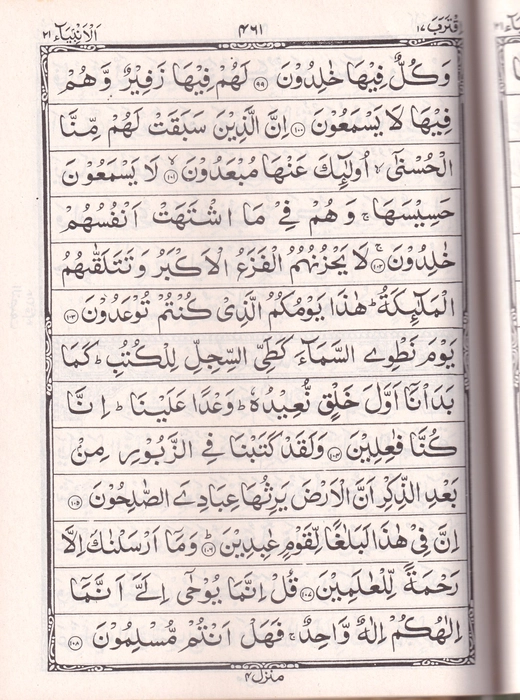 اقْتَرَبَ ١٧ ٤٦١ اَلْاَنْبِيَآء ٢١
وَكُلٌّ فِيْهَا خٰلِدُوْنَ ۝٩٩ لَهُمْ فِيْهَا زَفِيْرٌ وَّهُمْ
فِيْهَا لَا يَسْمَعُوْنَ ۝١٠٠ اِنَّ الَّذِيْنَ سَبَقَتْ لَهُمْ مِّنَّا
الْحُسْنٰٓى ۙ اُولٰٓئِكَ عَنْهَا مُبْعَدُوْنَ ۝١٠١ ۙ لَا يَسْمَعُوْنَ
حَسِيْسَهَا ۚ وَهُمْ فِيْ مَا اشْتَهَتْ اَنْفُسُهُمْ
خٰلِدُوْنَ ۝١٠٢ ۚ لَا يَحْزُنُهُمُ الْفَزَعُ الْاَكْبَرُ وَتَتَلَقّٰىهُمُ
الْمَلٰٓئِكَةُ ؕ هٰذَا يَوْمُكُمُ الَّذِيْ كُنْتُمْ تُوْعَدُوْنَ ۝١٠٣
يَوْمَ نَطْوِے السَّمَآءَ كَطَيِّ السِّجِلِّ لِلْكُتُبِ ؕ كَمَا
بَدَاْنَآ اَوَّلَ خَلْقٍ نُّعِيْدُهٗ ؕ وَعْدًا عَلَيْنَا ؕ اِنَّا
كُنَّا فٰعِلِيْنَ ۝١٠٤ وَلَقَدْ كَتَبْنَا فِے الزَّبُوْرِ مِنْۢ
بَعْدِ الذِّكْرِ اَنَّ الْاَرْضَ يَرِثُهَا عِبَادِيَ الصّٰلِحُوْنَ ۝١٠٥
اِنَّ فِيْ هٰذَا لَبَلٰغًا لِّقَوْمٍ عٰبِدِيْنَ ۝١٠٦ ؕ وَمَآ اَرْسَلْنٰكَ اِلَّا
رَحْمَةً لِّلْعٰلَمِيْنَ ۝١٠٧ قُلْ اِنَّمَا يُوْحٰٓى اِلَيَّ اَنَّمَآ
اِلٰهُكُمْ اِلٰهٌ وَّاحِدٌ ۚ فَهَلْ اَنْتُمْ مُّسْلِمُوْنَ ۝١٠٨
منزل ٤